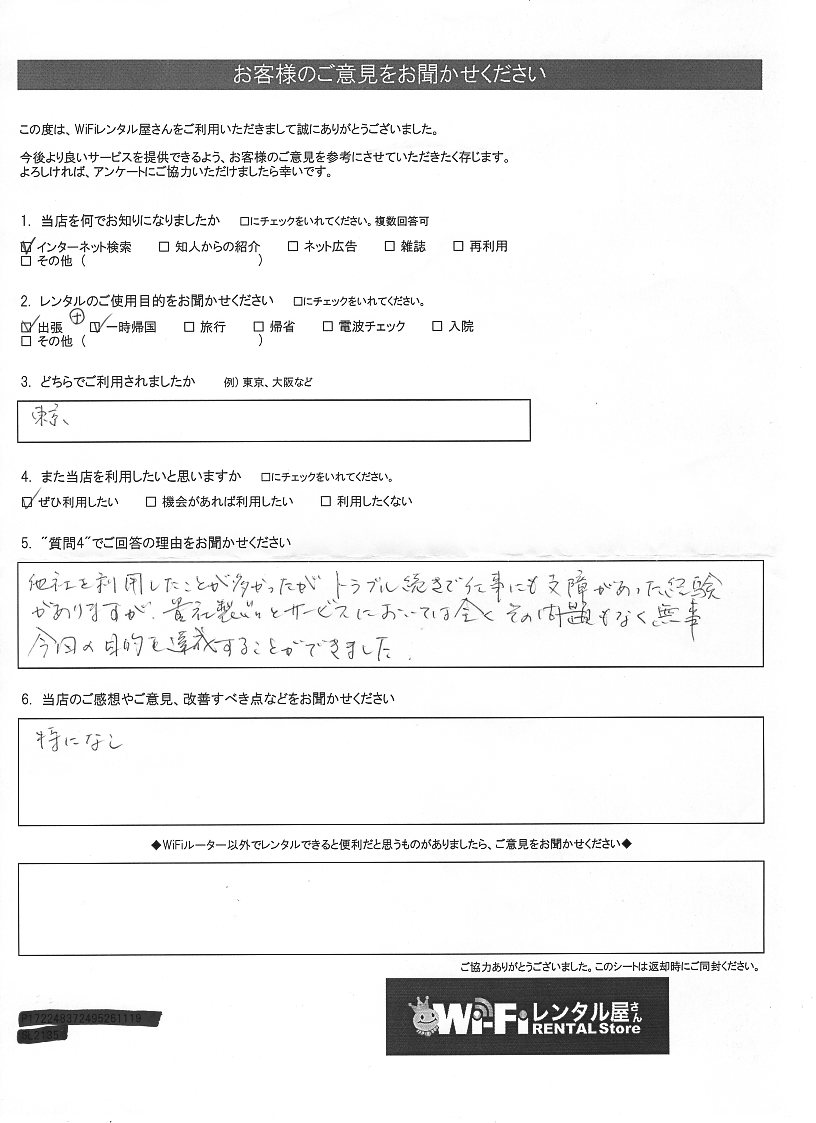 お客様のご意見をお聞かせください
この度は、WiFiレンタル屋さんをご利用いただきまして誠にありがとうございました。
今後より良いサービスを提供できるよう、お客様のご意見を参考にさせていただきたく存じます。
よろしければ、アンケートにご協力いただけましたら幸いです。
1. 当店を何でお知りになりましたか □にチェックをいれてください。複数回答可
☑ インターネット検索 □ 知人からの紹介 □ ネット広告 □ 雑誌 □ 再利用
□ その他 ( )
2. レンタルのご使用目的をお聞かせください □にチェックをいれてください。
☑ 出張 ⊕ ☑ 一時帰国 □ 旅行 □ 帰省 □ 電波チェック □ 入院
□ その他 ( )
3. どちらでご利用されましたか 例) 東京、大阪など
東京、
4. また当店を利用したいと思いますか □にチェックをいれてください。
☑ ぜひ利用したい □ 機会があれば利用したい □ 利用したくない
5. "質問4"でご回答の理由をお聞かせください
他社を利用したことが多かったが トラブル続きで仕事にも支障があった経験
がありますが、貴社製品とサービスにおいては全くその問題もなく無事
今回の目的を達成することができました.
6. 当店のご感想やご意見、改善すべき点などをお聞かせください
特になし
◆WiFiルーター以外でレンタルできると便利だと思うものがありましたら、ご意見をお聞かせください◆
ご協力ありがとうございました。このシートは返却時にご同封ください。
Wi-Fi レンタル屋さん
RENTAL Store